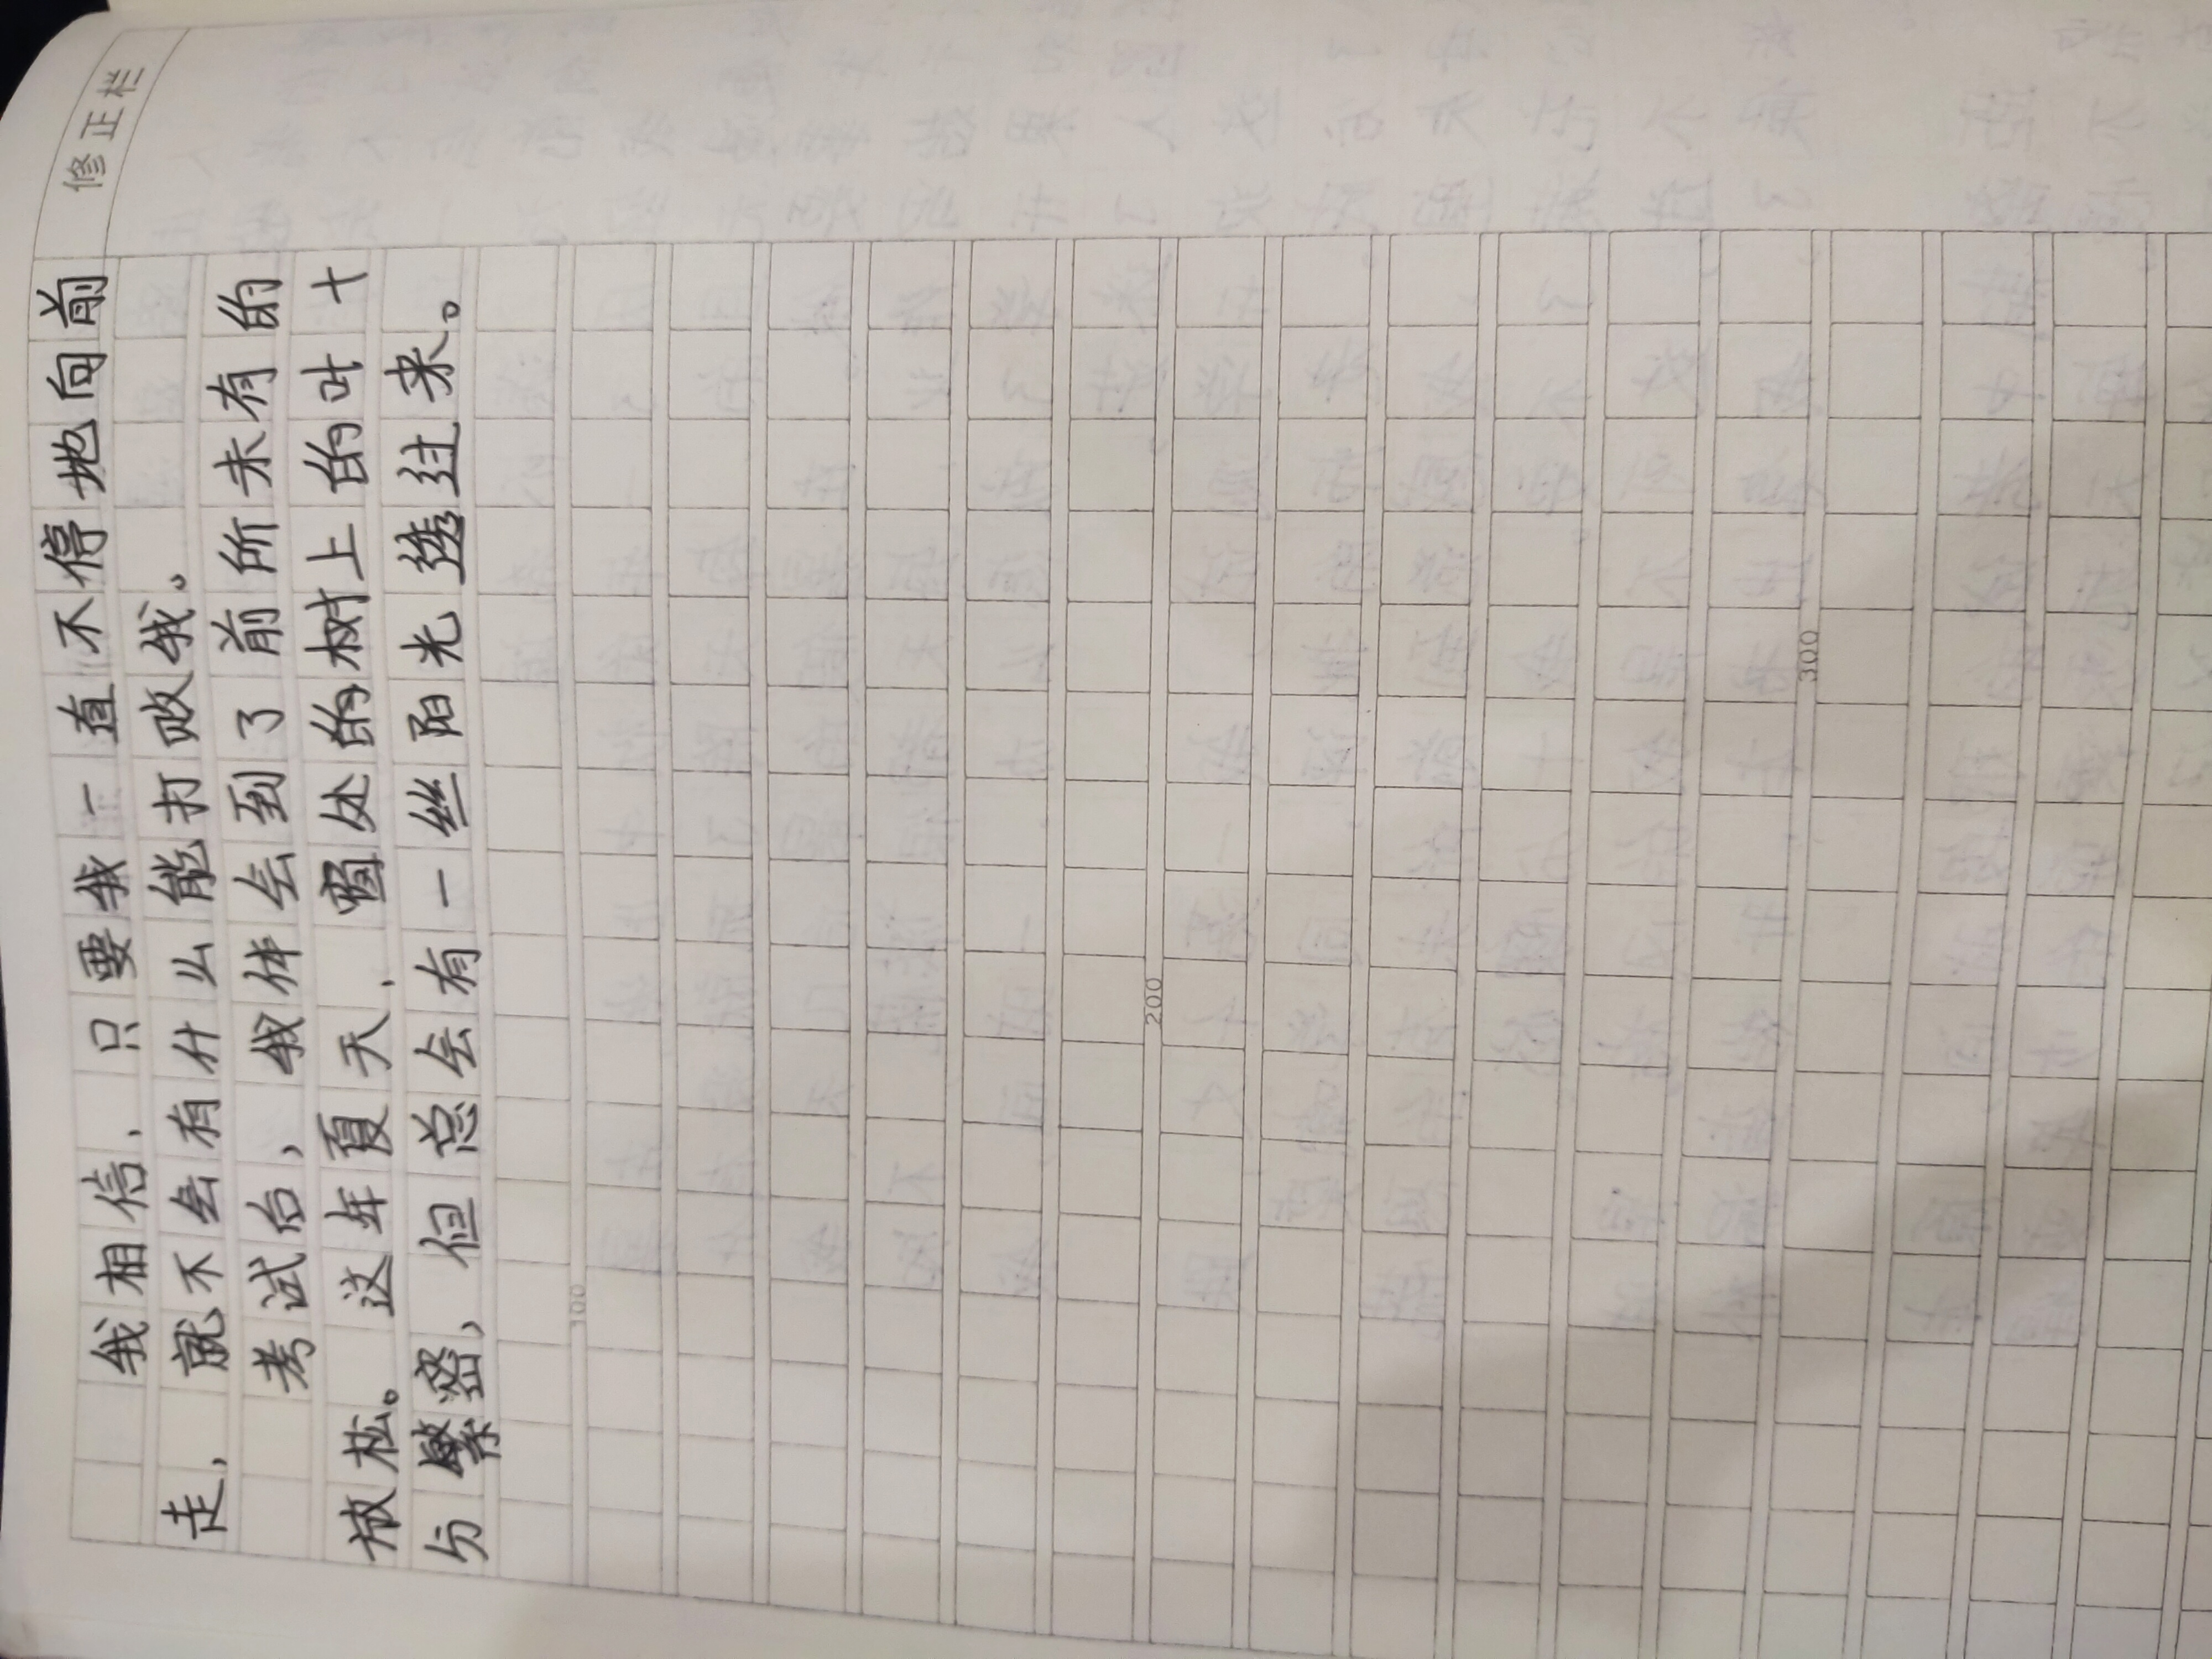 修正栏
我相信，只要我一直不停地向前
走，就不会有什么能打败我。
考试后，我体会到了前所未有的
放松。这年夏天，窗处的树上的叶十
分繁密，但总会有一丝阳光透过来。
100
200
300